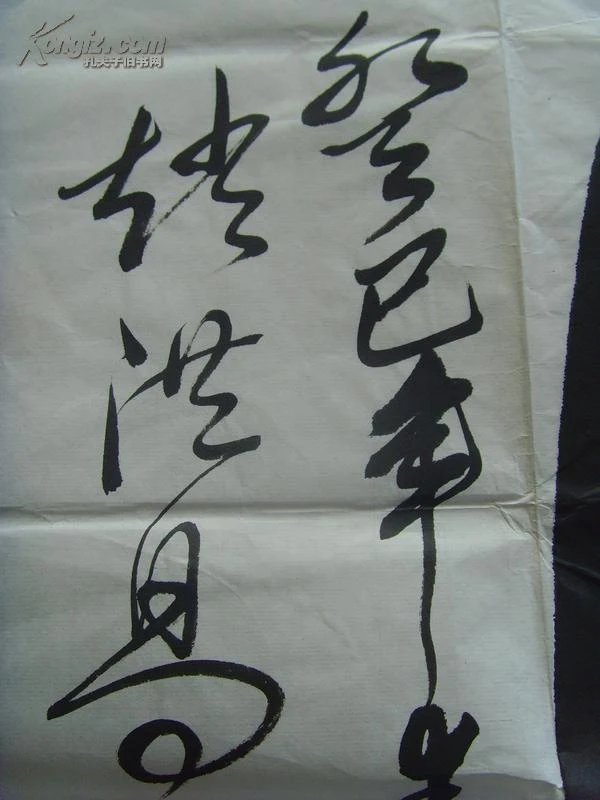 癸巳年
赵洪昌
Kongfz.com
孔夫子旧书网